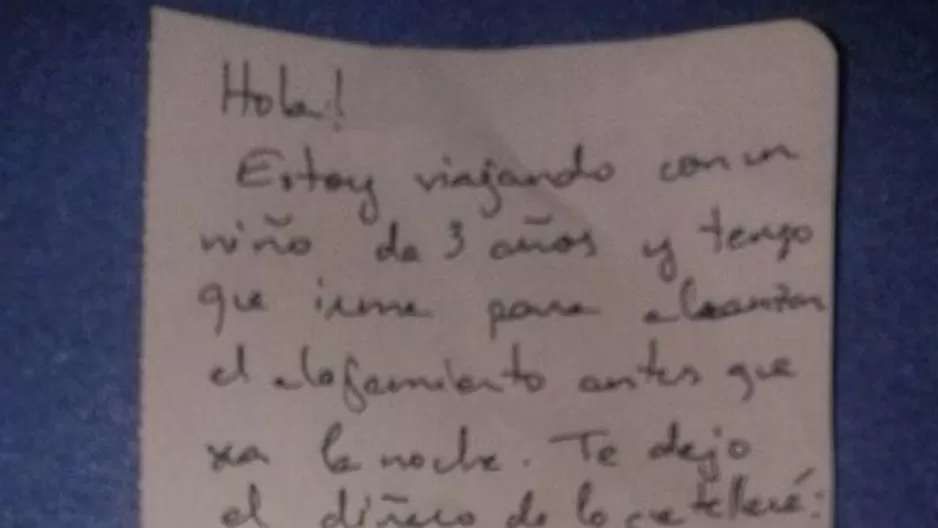 Hola!
Estoy viajando con un
niño de 3 años y tengo
que irme para alcanzar
el alojamiento antes que
sea la noche. Te dejo
el diñero de lo que llevé: